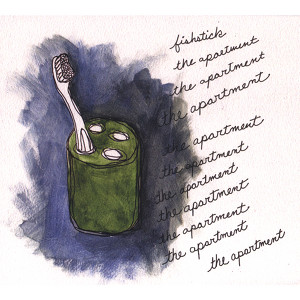 fishstick
the apartment
the apartment
the apartment
the apartment
the apartment
the apartment
the apartment
the apartment
the apartment
the apartment